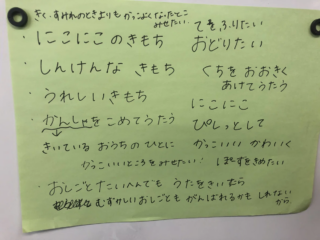 きく・すみれのときよりも かっこよくなったとこ
みせたい。 てをふりたい
・にこにこのきもち おどりたい
・しんけんな きもち くちを おおきく
あけてうたう
・うれしいきもち にこにこ
・かんしゃをこめてうたう ぴしっとして
きいている おうちの ひとに かっこいい かわいく
かっこいいところをみせたい。 ポーズをきめたい
・おしごとたいへんでも うたをきいたら
むずかしいおしごとも がんばれるかも しれない
から